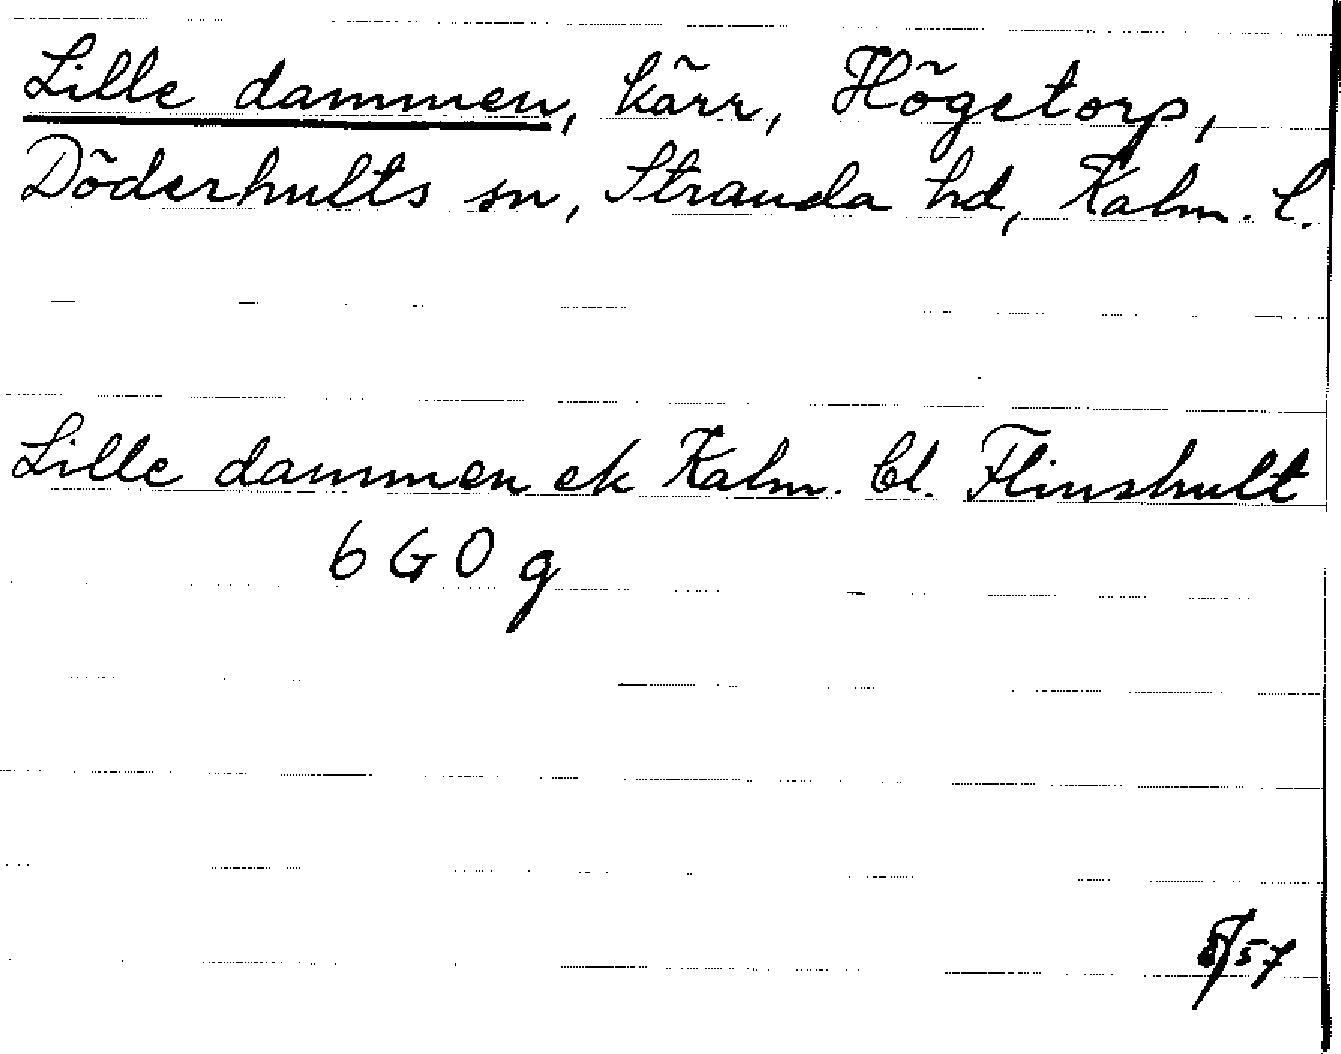 Lille dammen, kärr, Högetorp,
Döderhults sn, Stranda hd, Kalm. l.
Lille dammen ek Kalm. bl. Flinshult
6 G O g
/57